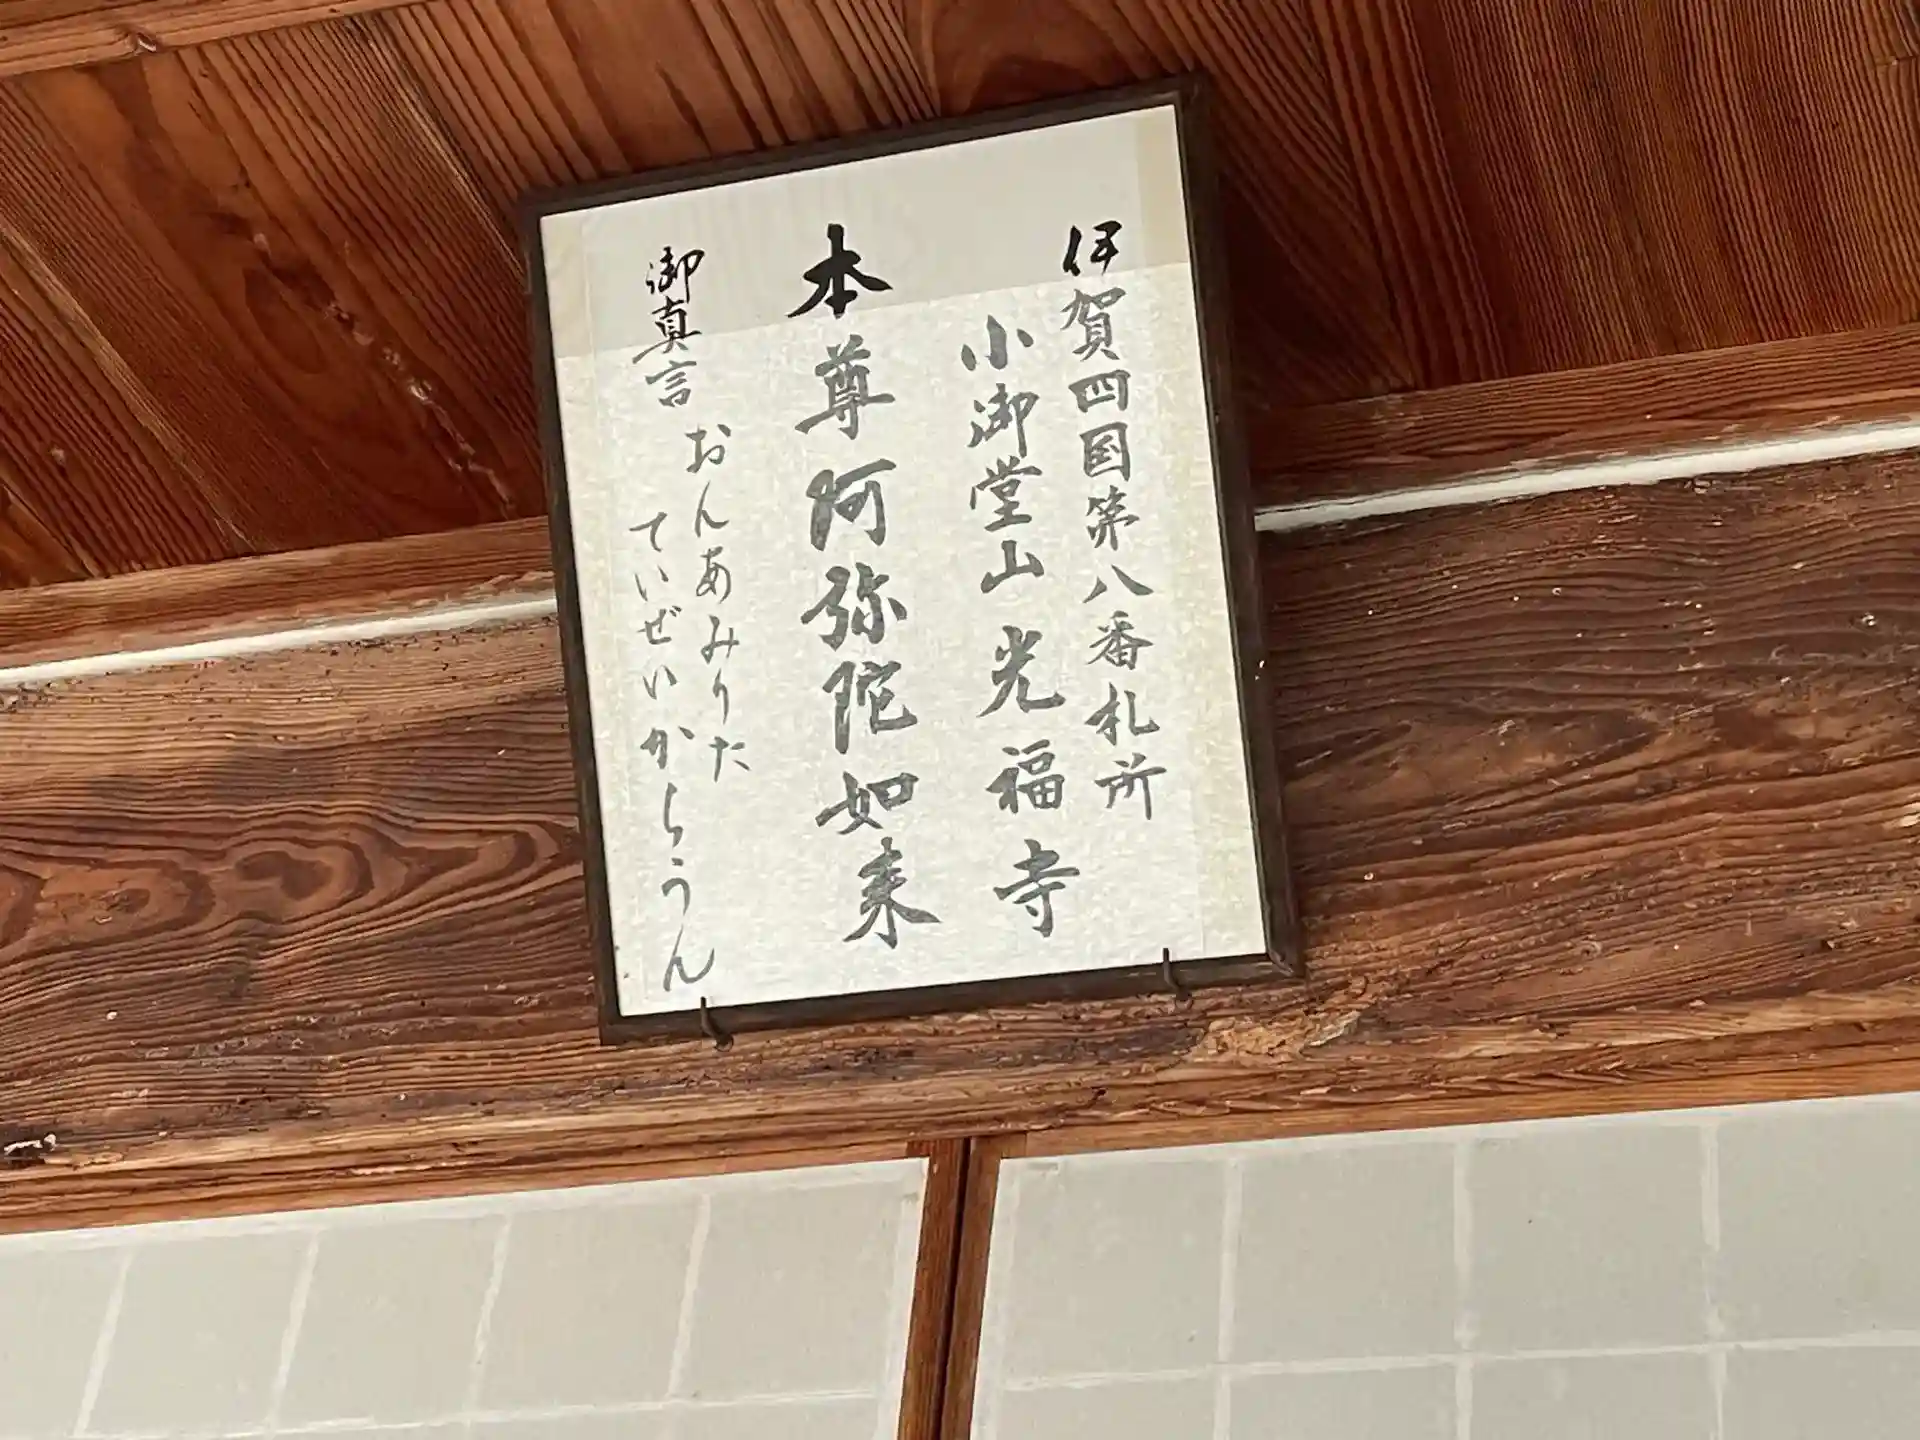 伊賀四国第八番札所
小御堂山光福寺
本尊阿弥陀如来
御真言
おんあみりた
ていぜいからうん